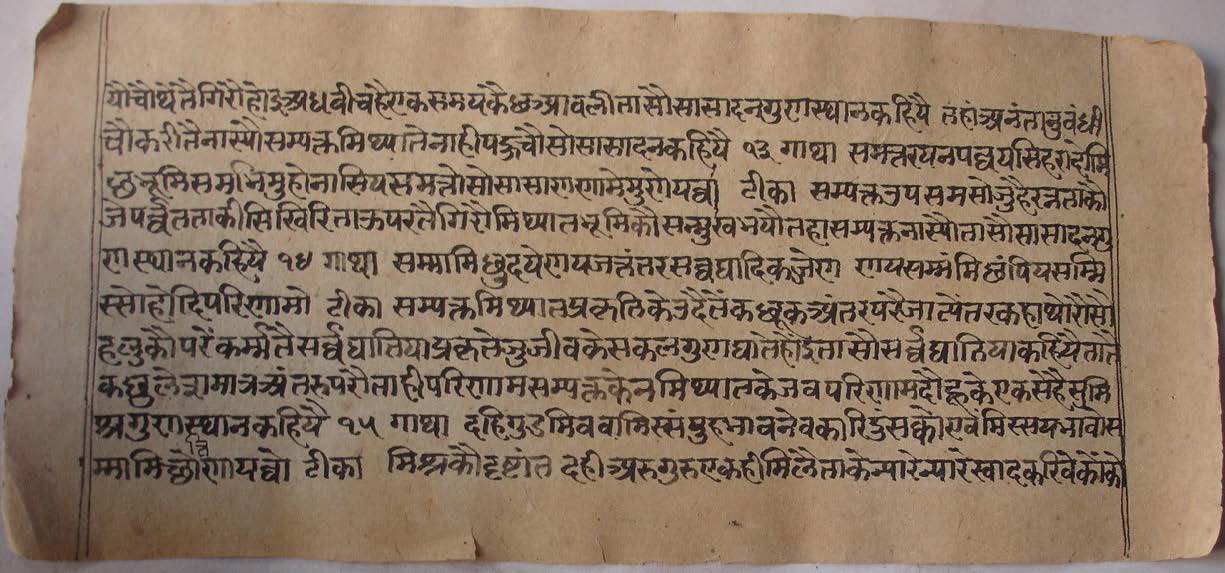 यौ चौथे तै गिरौ होइ अध वीच है एक समय कै छ आवली ता सौ सासादन गुणस्थान कहियै तहां अनंतानुबंधी
चौकरी तै नास्यौ सम्यक्त मिथ्यात नाही सो सासादन कहियै १३ गाथा सम्मत्तरयनपव्वयसिहरादोमि
छभूमिसमभिमुहो नासियसम्मत्तो सो सासाणणामो मुणेयव्वो टीका सम्यक्त उपसम सो
जे पर्व्वत ताकी सिखिरि ता ऊपर तै गिरौ मिथ्यात भूमि कौ सन्मुख भयौ तहा सम्यक्त नास्यौ ता सौ सासादन गु
णस्थान कहियै १४ गाथा सम्मामिछुदयेणय जत्तंतर सव्वघादि कज्जेण णय सम्मं मिछं पिय सम्मि
स्सो होदि परिणामो टीका सम्यक्त मिथ्यात प्रकृति के उदै तें कछूक अंतर परै जात्येतर कहा
कौ परें कर्म्म तै सर्व्वघातिया प्रकृते जु जीव के सकल गुण घाते होइ ता सौ सर्व्वघातिया कहियै ता तै
कछु अंतरु परौ ता ही परिणाम सम्यक्त के न मिथ्यात के जव परिणाम दौ के एक से है सु मि
श्र गुणस्थान कहियै १५ गाथा दहि गुडमिव वामिस्सं पुहभावं नेव कारिदुं सक्को एवं मिस्सयभावो स
म्मामिछोत्ति णायव्वो टीका मिश्र कौ दृष्टांत दही अरु गुरु एक ही मिलै ता के न्यारे न्यारे स्वाद करिवे कों को